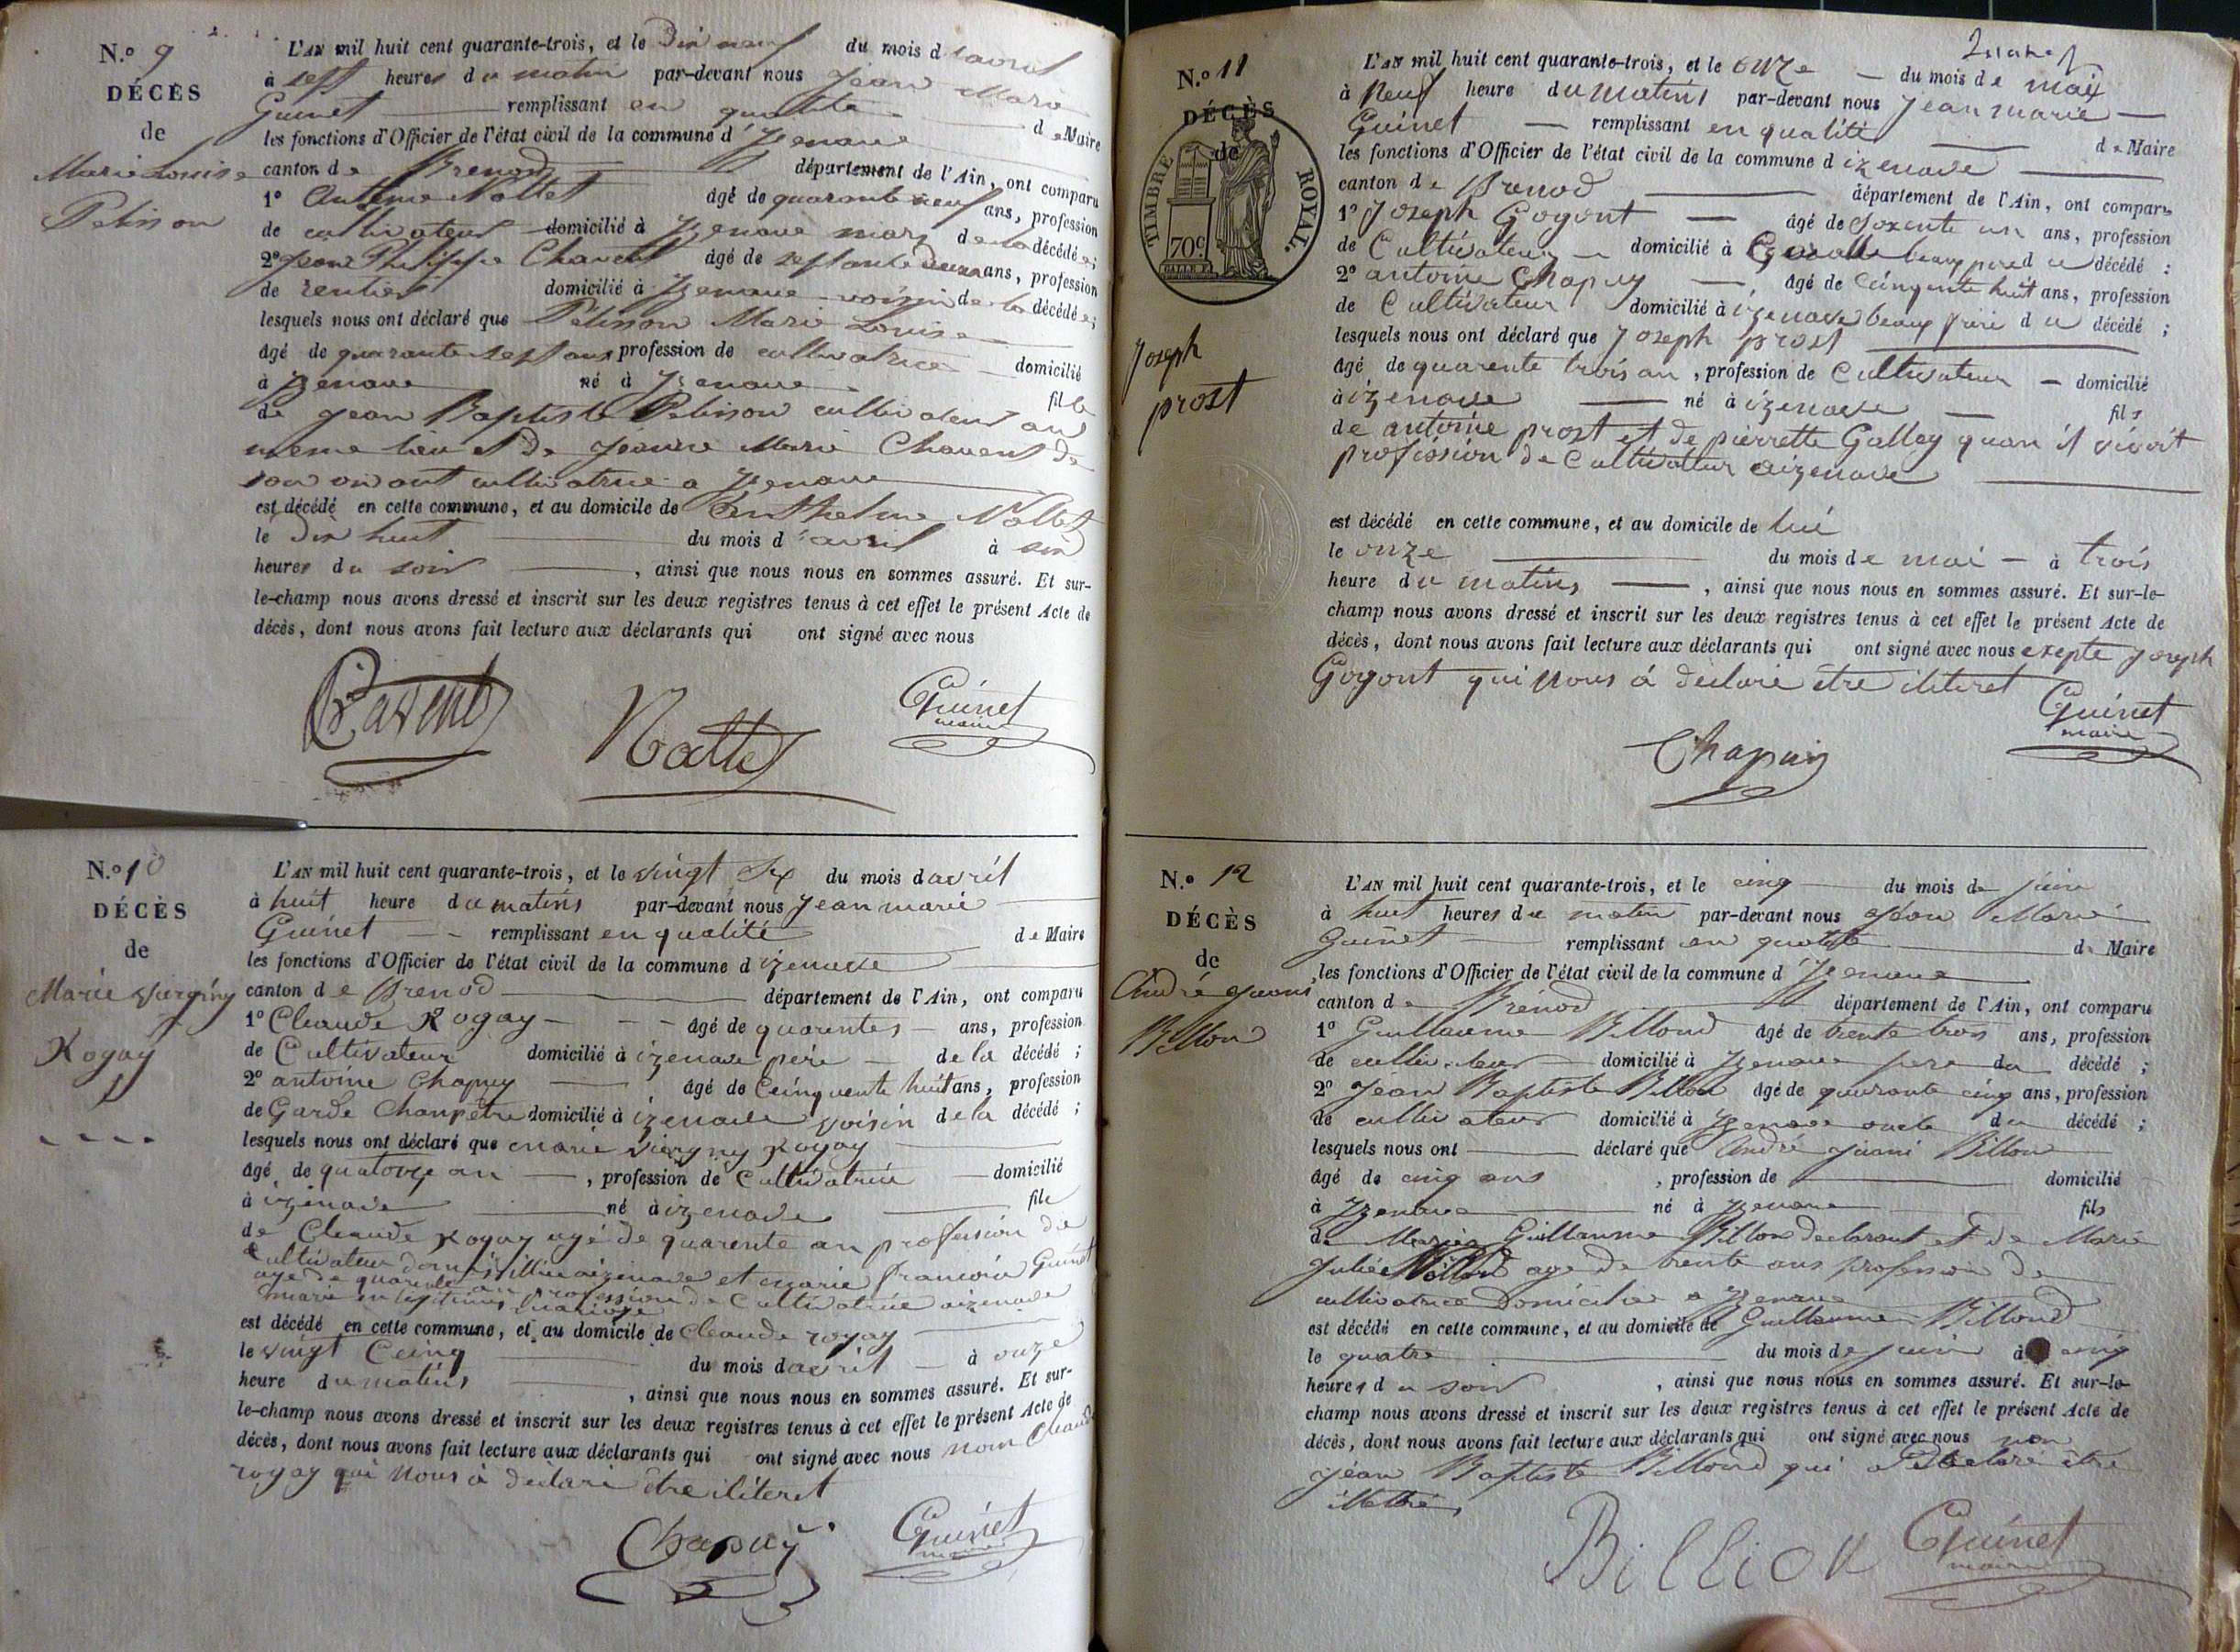 N.º 9
DÉCÈS
de
Marie Louise
Pelisson
L'AN mil huit cent quarante-trois, et le Dix neuf du mois d'avril
à sept heures du matin par-devant nous Jean Marie
Guinet remplissant en qualité de Maire
les fonctions d'Officier de l'état civil de la commune d'Izenave
canton de Brenod département de l'Ain, ont comparu
1º Nallet âgé de quarante neuf ans, profession
de cultivateur domicilié à Izenave mary de la décédée;
2º Jean Philippe Chavent âgé de septante ans, profession
de rentier domicilié à Izenave voisin de la décédée;
lesquels nous ont déclaré que Pelisson Marie Louise
âgé de quarante sept ans profession de cultivatrice domicilié
à Izenave né à Izenave fille
de Jean Baptiste Pelisson cultivateur au
meme lieu et de Jeanne Marie Chavent de
son vivant cultivatrice a Izenave
est décédé en cette commune, et au domicile de Anthelme Nallet
le Dix huit du mois d'avril à six
heures du soir, ainsi que nous nous en sommes assuré. Et sur-
le-champ nous avons dressé et inscrit sur les deux registres tenus à cet effet le présent Acte de
décès, dont nous avons fait lecture aux déclarants qui ont signé avec nous
Chavent Nallet Guinet
maire
N.º 10
DÉCÈS
de
Marie Viergny
Rogay
L'AN mil huit cent quarante-trois, et le vingt Six du mois d avril
à huit heure du matins par-devant nous Jean marie
Guinet remplissant en qualité de Maire
les fonctions d'Officier de l'état civil de la commune d izenave
canton de Brenod département de l'Ain, ont comparu
1º Claude Rogay âgé de quarentes ans, profession
de Cultivateur domicilié à izenave pére de la décédé;
2º antoine Chapuy âgé de Ceinquente huit ans, profession
de Garde Chanpétre domicilié à izenave voisin de la décédé;
lesquels nous ont déclaré que marie viergny Rogay
âgé de quatorze an, profession de Cultivatrice domicilié
à izenave né à izenave file
de Claude Rogay agé de quarente an profession de
Cultivateur domisillié aizenave et marie francoise Guinet
age de quarente an profession de Cultivatrice aizenave
marie en legitimes mariage
est décédé en cette commune, et au domicile de Claude rogay
le vingt Ceinq du mois d avril à onze
heure du matins, ainsi que nous nous en sommes assuré. Et sur-
le-champ nous avons dressé et inscrit sur les deux registres tenus à cet effet le présent Acte de
décès, dont nous avons fait lecture aux déclarants qui ont signé avec nous nom Claude
rogay qui nous à declare étre iliteret
Chapuy Guinet
maire
N.º 11
DÉCÈS
de
TIMBRE ROYAL.
70c.
Joseph
prost
L'AN mil huit cent quarante-trois, et le onze du mois de mai
à Neuf heure du matins par-devant nous Jean marie
Guinet remplissant en qualité de Maire
les fonctions d'Officier de l'état civil de la commune d izenave
canton de Brenod département de l'Ain, ont comparu
1º Joseph Gogont âgé de Soxente un ans, profession
de Cultivateur domicilié à beaux pere du décédé:
2º antoine Chapuy âgé de Cinquente huit ans, profession
de Cultivateur domicilié à izenave beaux frire du décédé;
lesquels nous ont déclaré que Joseph prost
âgé de quarente trois an, profession de Cultivateur domicilié
à izenave né à izenave fils
de antoine prost et de pierrette Gallay quan il vivoit
profession de Cultivatteur aizenave
est décédé en cette commune, et au domicile de lui
le onze du mois de mai à trois
heure du matins, ainsi que nous nous en sommes assuré. Et sur-le-
champ nous avons dressé et inscrit sur les deux registres tenus à cet effet le présent Acte de
décès, dont nous avons fait lecture aux déclarants qui ont signé avec nous exepte Joseph
Gogont qui nous à declaré étre iliteret
Chapuy Guinet
maire
N.º 12
DÉCÈS
de
André
Billon
L'AN mil huit cent quarante-trois, et le cinq du mois de juin
à huit heures du matin par-devant nous Jean Marie
Guinet remplissant en qualité de Maire
les fonctions d'Officier de l'état civil de la commune d'Izenave
canton de Brénod département de l'Ain, ont comparu
1º Guillaume Billoud âgé de trente trois ans, profession
de cultivateur domicilié à Izenave pere du décédé;
2º Jean Baptiste Billon âgé de quarante cinq ans, profession
de cultivateur domicilié à Izenave oncle du décédé;
lesquels nous ont déclaré que André Billon
âgé de cinq ans, profession de domicilié
à Izenave né à Izenave fils
de Guillaume Billon declarant et de Marie
Julie age de trente ans profession de
cultivatrice domicilié a Izenave
est décédé en cette commune, et au domicile de Guillaume Billoud
le quatre du mois de juin à cinq
heures du soir, ainsi que nous nous en sommes assuré. Et sur-le-
champ nous avons dressé et inscrit sur les deux registres tenus à cet effet le présent Acte de
décès, dont nous avons fait lecture aux déclarants qui ont signé avec nous non
Jean Baptiste Billoud qui a declaré être
illettré
Billion Guinet
maire